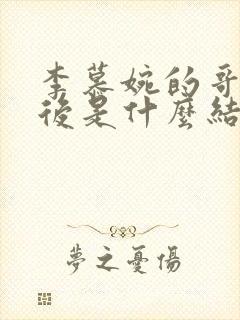 李慕婉的哥
後是什麼結
夢之憂傷